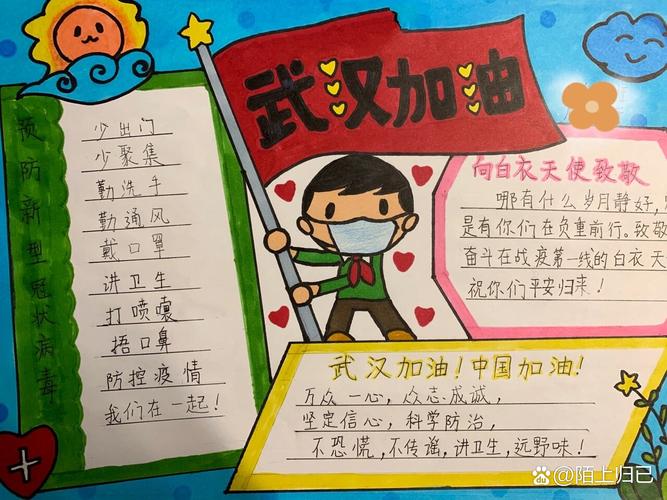 武汉加油
预防新型冠状病毒
少出门
少聚集
勤洗手
勤通风
戴口罩
讲卫生
打喷
捂口鼻
防控疫情
我们在一起!
向白衣天使致敬
哪有什么岁月静好,
是有你们在负重前行。致敬
奋斗在战疫第一线的白衣天
祝你们平安归来!
武汉加油!中国加油!
万众一心,众志成诚,
坚定信心,科学防治,
不恐慌,不传谣,讲卫生,远野味!
陌上归已